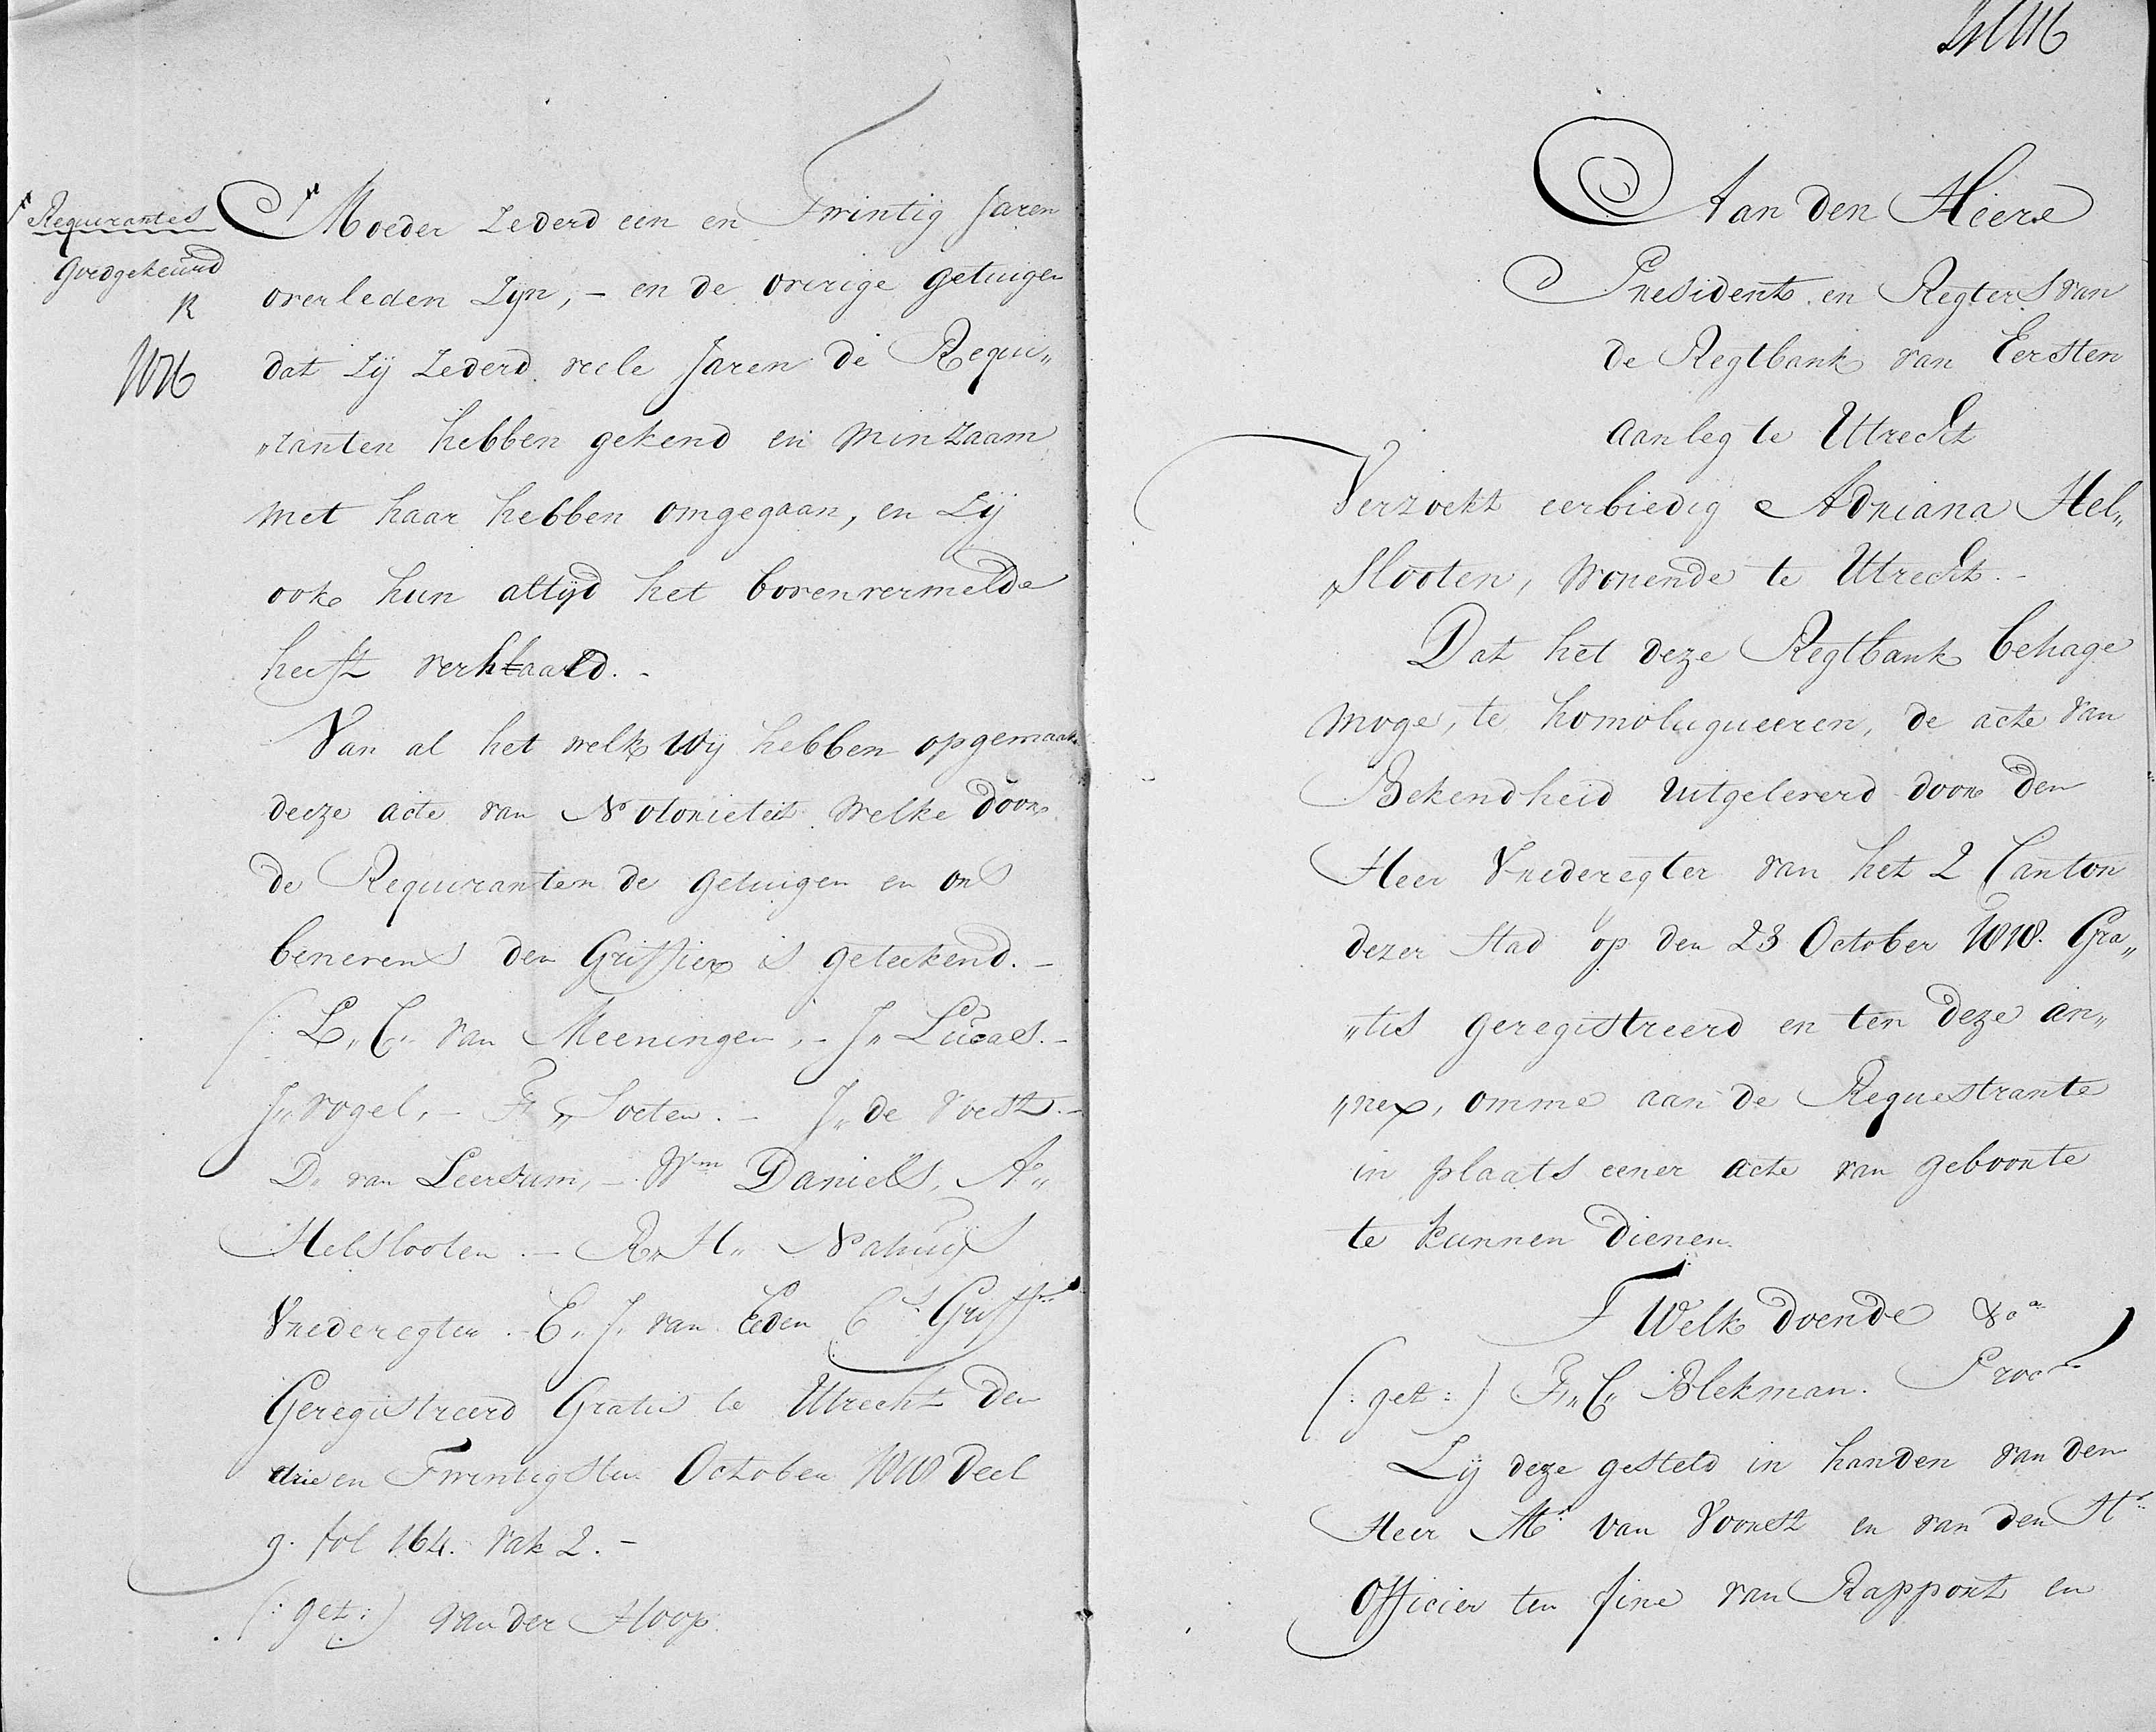 Requirantes
Goedgekeurd
R
Moeder zederd een en Twintig Jaren
overleden zijn, - en de overige getuigen
dat zij zederd veele Jaren de Requi„
„ranten hebben gekend en minzaam
met haar hebben omgegaan, en zij
ook hun altijd het bovenvermelde
heeft verklaard. -
Van al het welk Wij hebben opgemaakt
deeze acte van Notorieteit welke door
de Requiranten de getuigen en ons
benevens den Griffier is geteekend. -
(: L„ C„ van Meeningen, - J„ Lucas. -
J„ Vogel, - F„ Soeten. - J„ de Voest. -
D„ van Leersum, - Wm Daniels, A„
Helslooten. - R„ H„ Nahuijs
Vrederegter. - E„ J„ van Eeden Cs Griffr
Geregistreerd Gratis te Utrecht den
drie en Twintigsten October 1818 Deel
9. fol 164. vak 2. -
(: get :) van der Hoop.
Aan den Heere
President en Regters van
de Regtbank van Eersten
aanleg te Utrecht
Verzoekt eerbiedig Adriana Hel„
„slooten, wonende te Utrecht. -
Dat het deze Regtbank behage
moge, te homologueeren, de acte van
Bekendheid uitgeleverd door den
Heer Vrederegter van het 2 Canton
dezer Stad op den 23 October 1818. Gra„
„tis geregistreerd en ten deze an„
„nex, omme aan de Requestrante
in plaats eener acte van geboorte
te kunnen dienen.
T Welk doende &a
(: get :) F„ C„ Blekman. Procr
Zij deze gesteld in handen van den
Heer Mr van Voorst en van den Hr
Officier ten fine van Rapport en